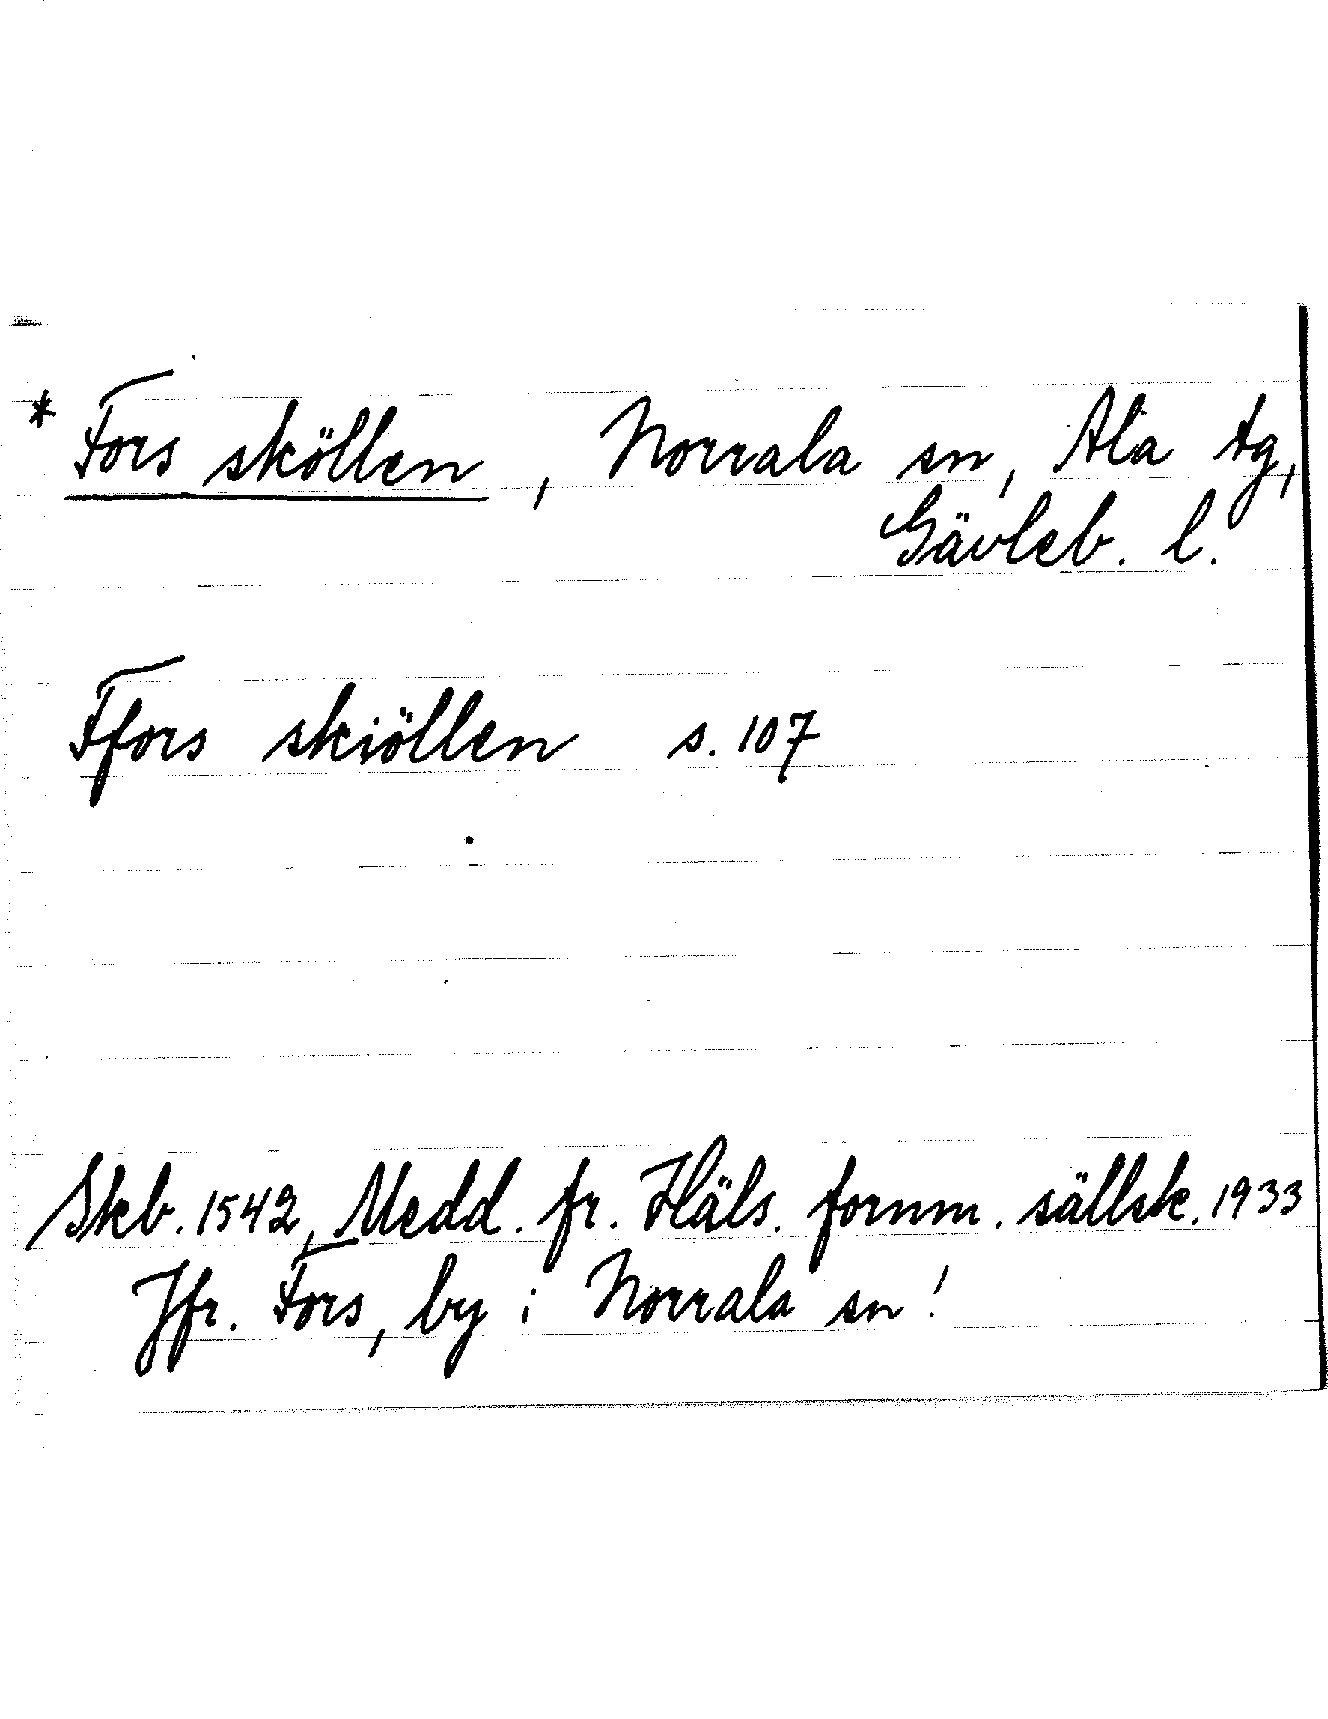 * Fors sköllen, Norrala sn, Ala tg,
Gävleb. l.
Ffors skiöllen s. 107
Skb. 1542, Medd. fr. Häls. fornm. sällsk. 1933
Jfr. Fors, by i Norrala sn!